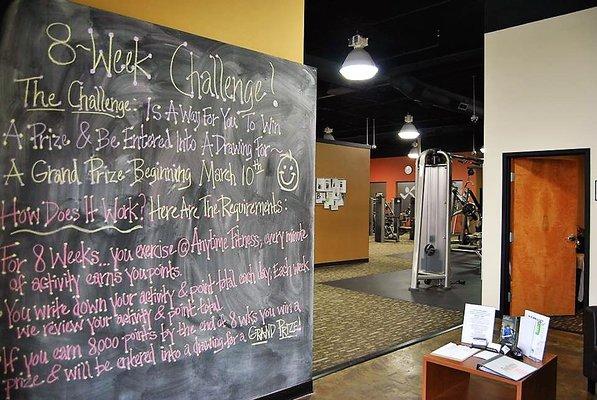 8~Week Challenge!
The Challenge: Is A Way For You To Win
A Prize & Be Entered Into A Drawing For~
A Grand Prize Beginning March 10th
How Does It Work? Here Are The Requirements:
For 8 Weeks... you exercise @ Anytime Fitness, every minute
of activity earns you points.
You write down your activity & point total each day; Each week
we review your activity & point total.
If you earn 8000 points by the end of 8 wks you win a
prize & will be entered into a drawing for a GRAND PRIZE!